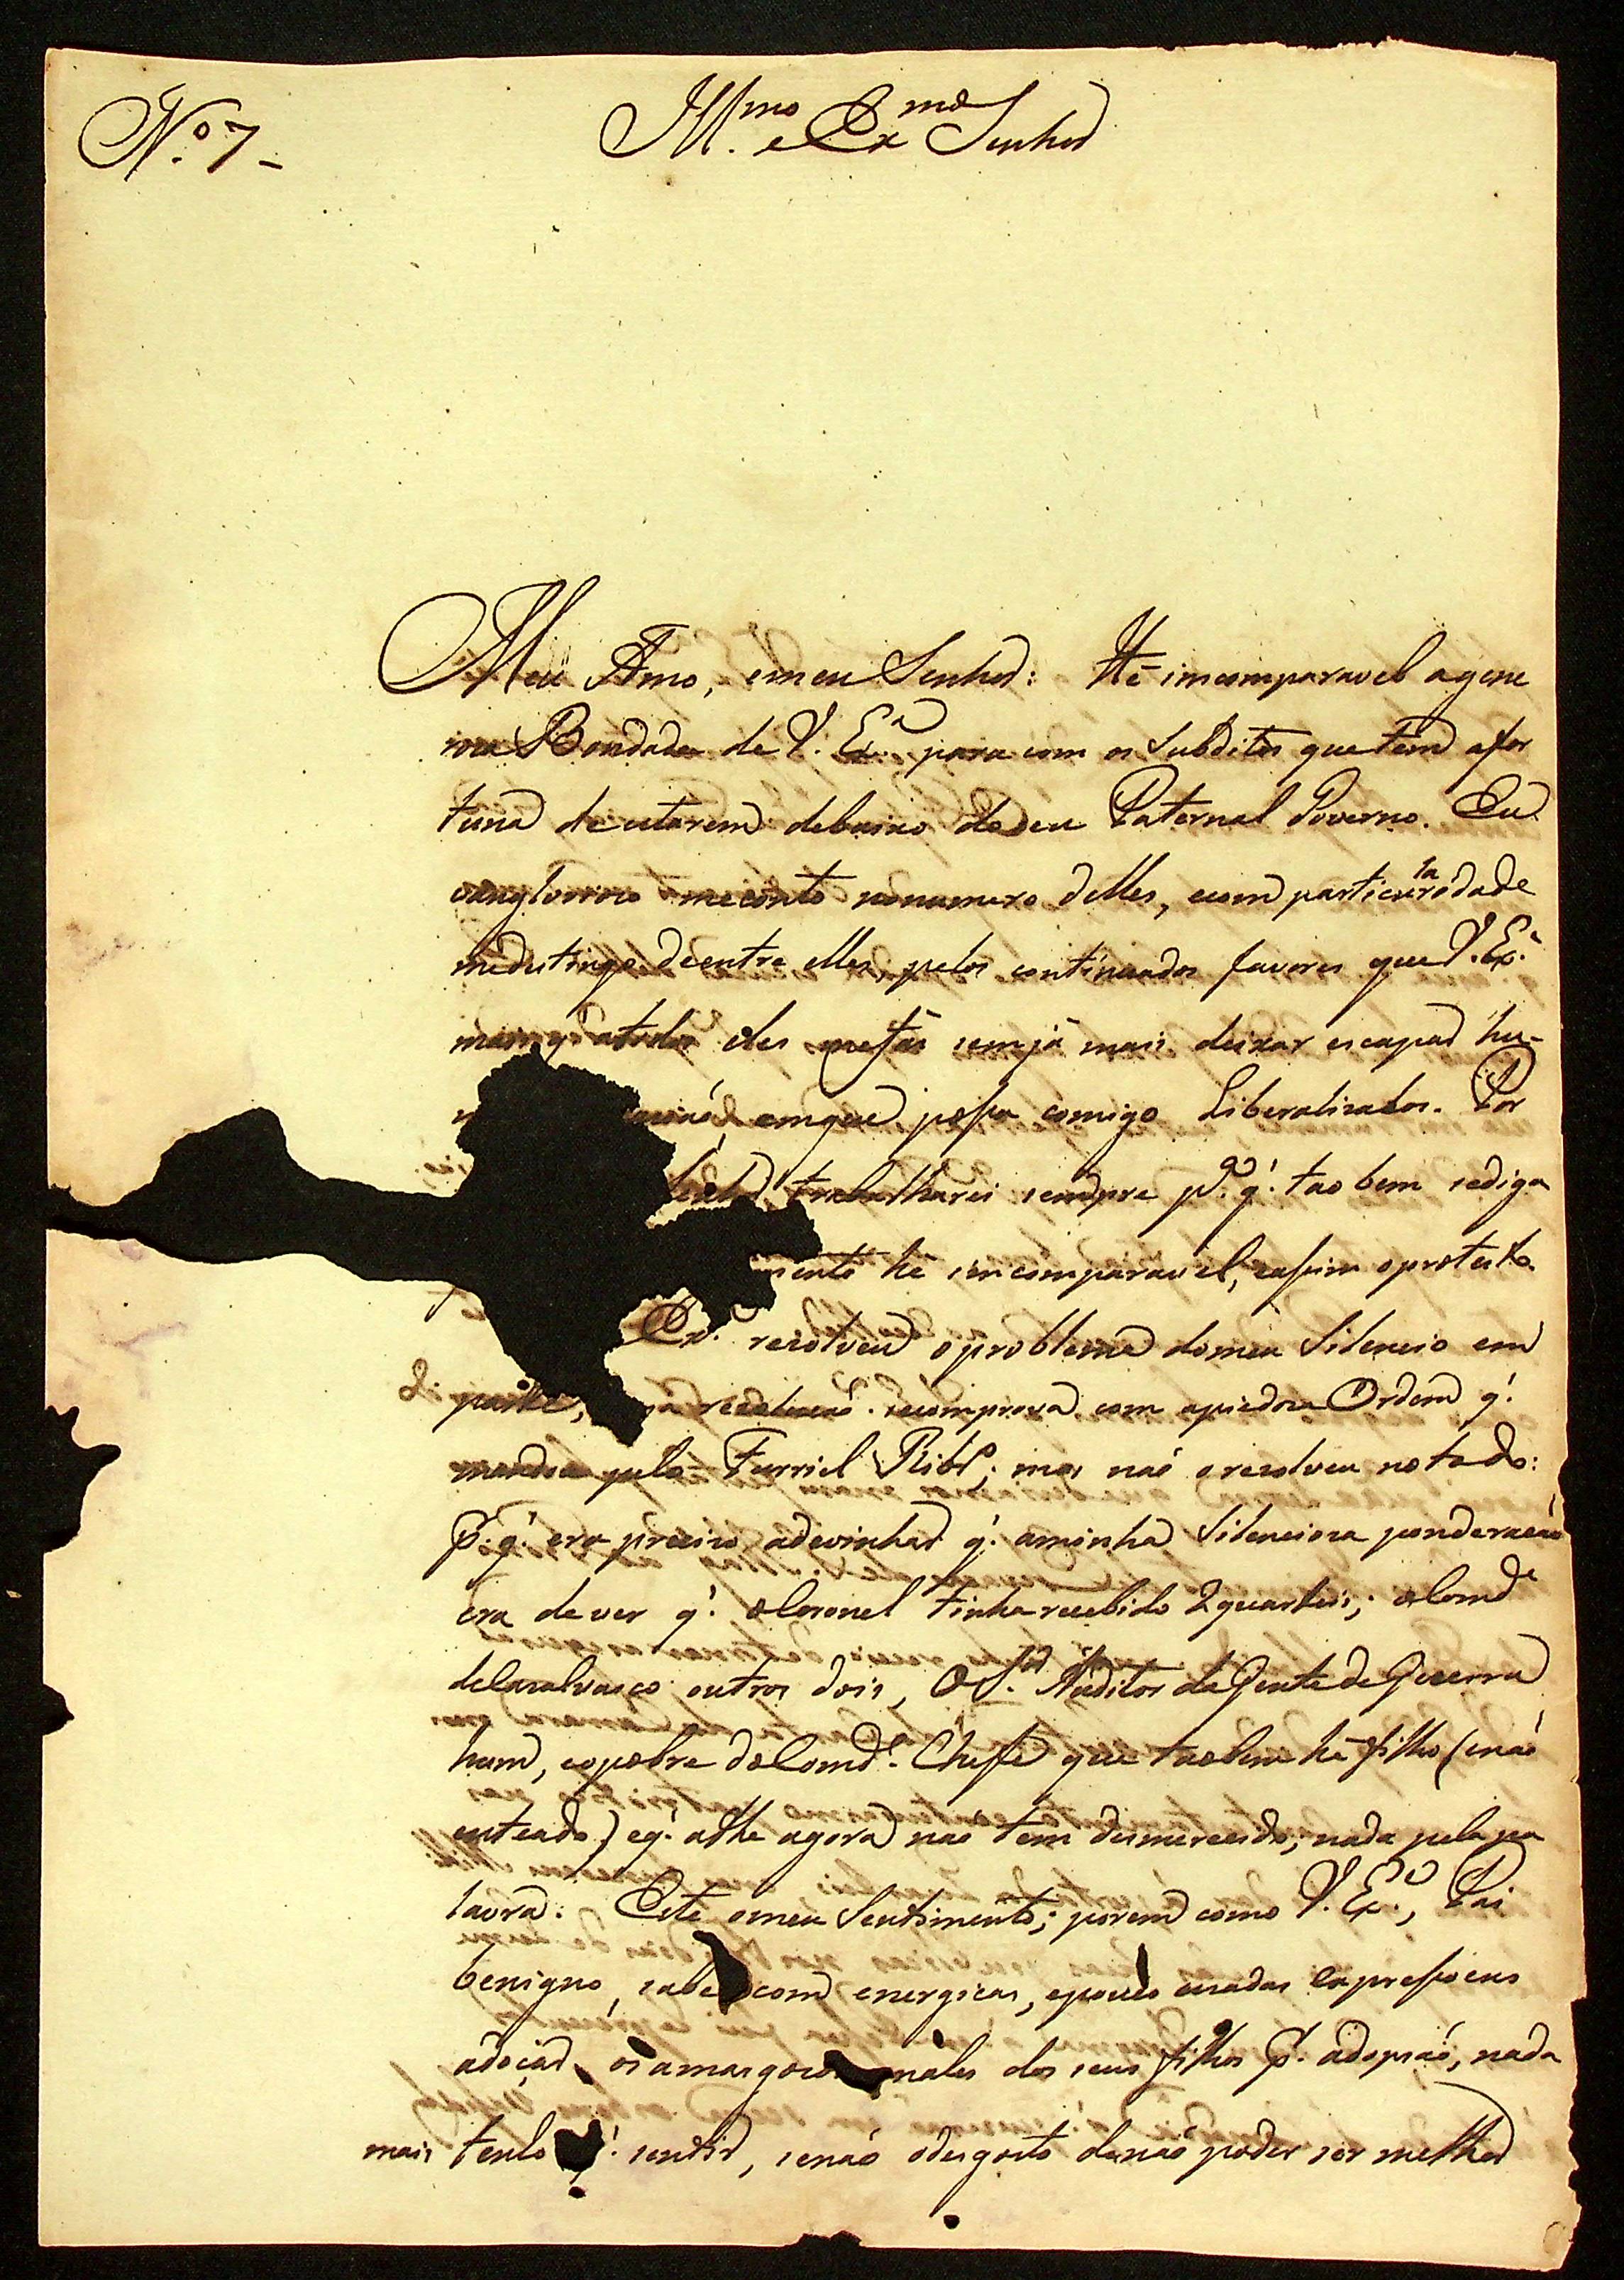 N.º 7 -
Ill.mo e Ex.mo Senhor
Meu Amo, e meu Senhor: Hé imcomparavel a gene
rica Bondade de V. Ex.ª para com os Subditos que tem a for
tuna de estarem debaixo do seu Paternal Governo. Eu
vanglorioso me conto no numero delles, e com particularidade
me destingo d'entre elles, pelos continuados favores que V. Ex.ª
mais q' a todos eles me fás sem já mais deixar escapar hu-
em que possa comigo Liberalizalos. Por
trabalharei sempre p.ª q' tão bem se diga
mento hé imcomparavel, e assim o protesto.
Ex.ª rezolveu o problema do meu Silencio em
parte, rezolução se comprova com a piedoza Ordem q'
mandou pelo Furriel Ribr.º; mas não o rezolveu no todo:
P. q' era precizo adevinhar q' a minha Silencioza ponderação
era de ver q' o Coronel tinha recebido 2 quarteis; o Comd.e
de Cazalvasco outros dois, O S.r Auditor da Gente de Guerra
hum, e o pobre do Comd.e Chefe que tão bem hé filho (e não
enteado) e q' athe agora não tem desmerecido; nada pela pa
lavra. Este o meu Sentimento; porem como V. Ex.ª, Pai
benigno, sabe com energicas, e pouco uzadas expressoens
adoçar os amargozos males dos seus filhos P. adopção, nada
mais tenho q' sentir, senão o desgosto de não poder ser melhor